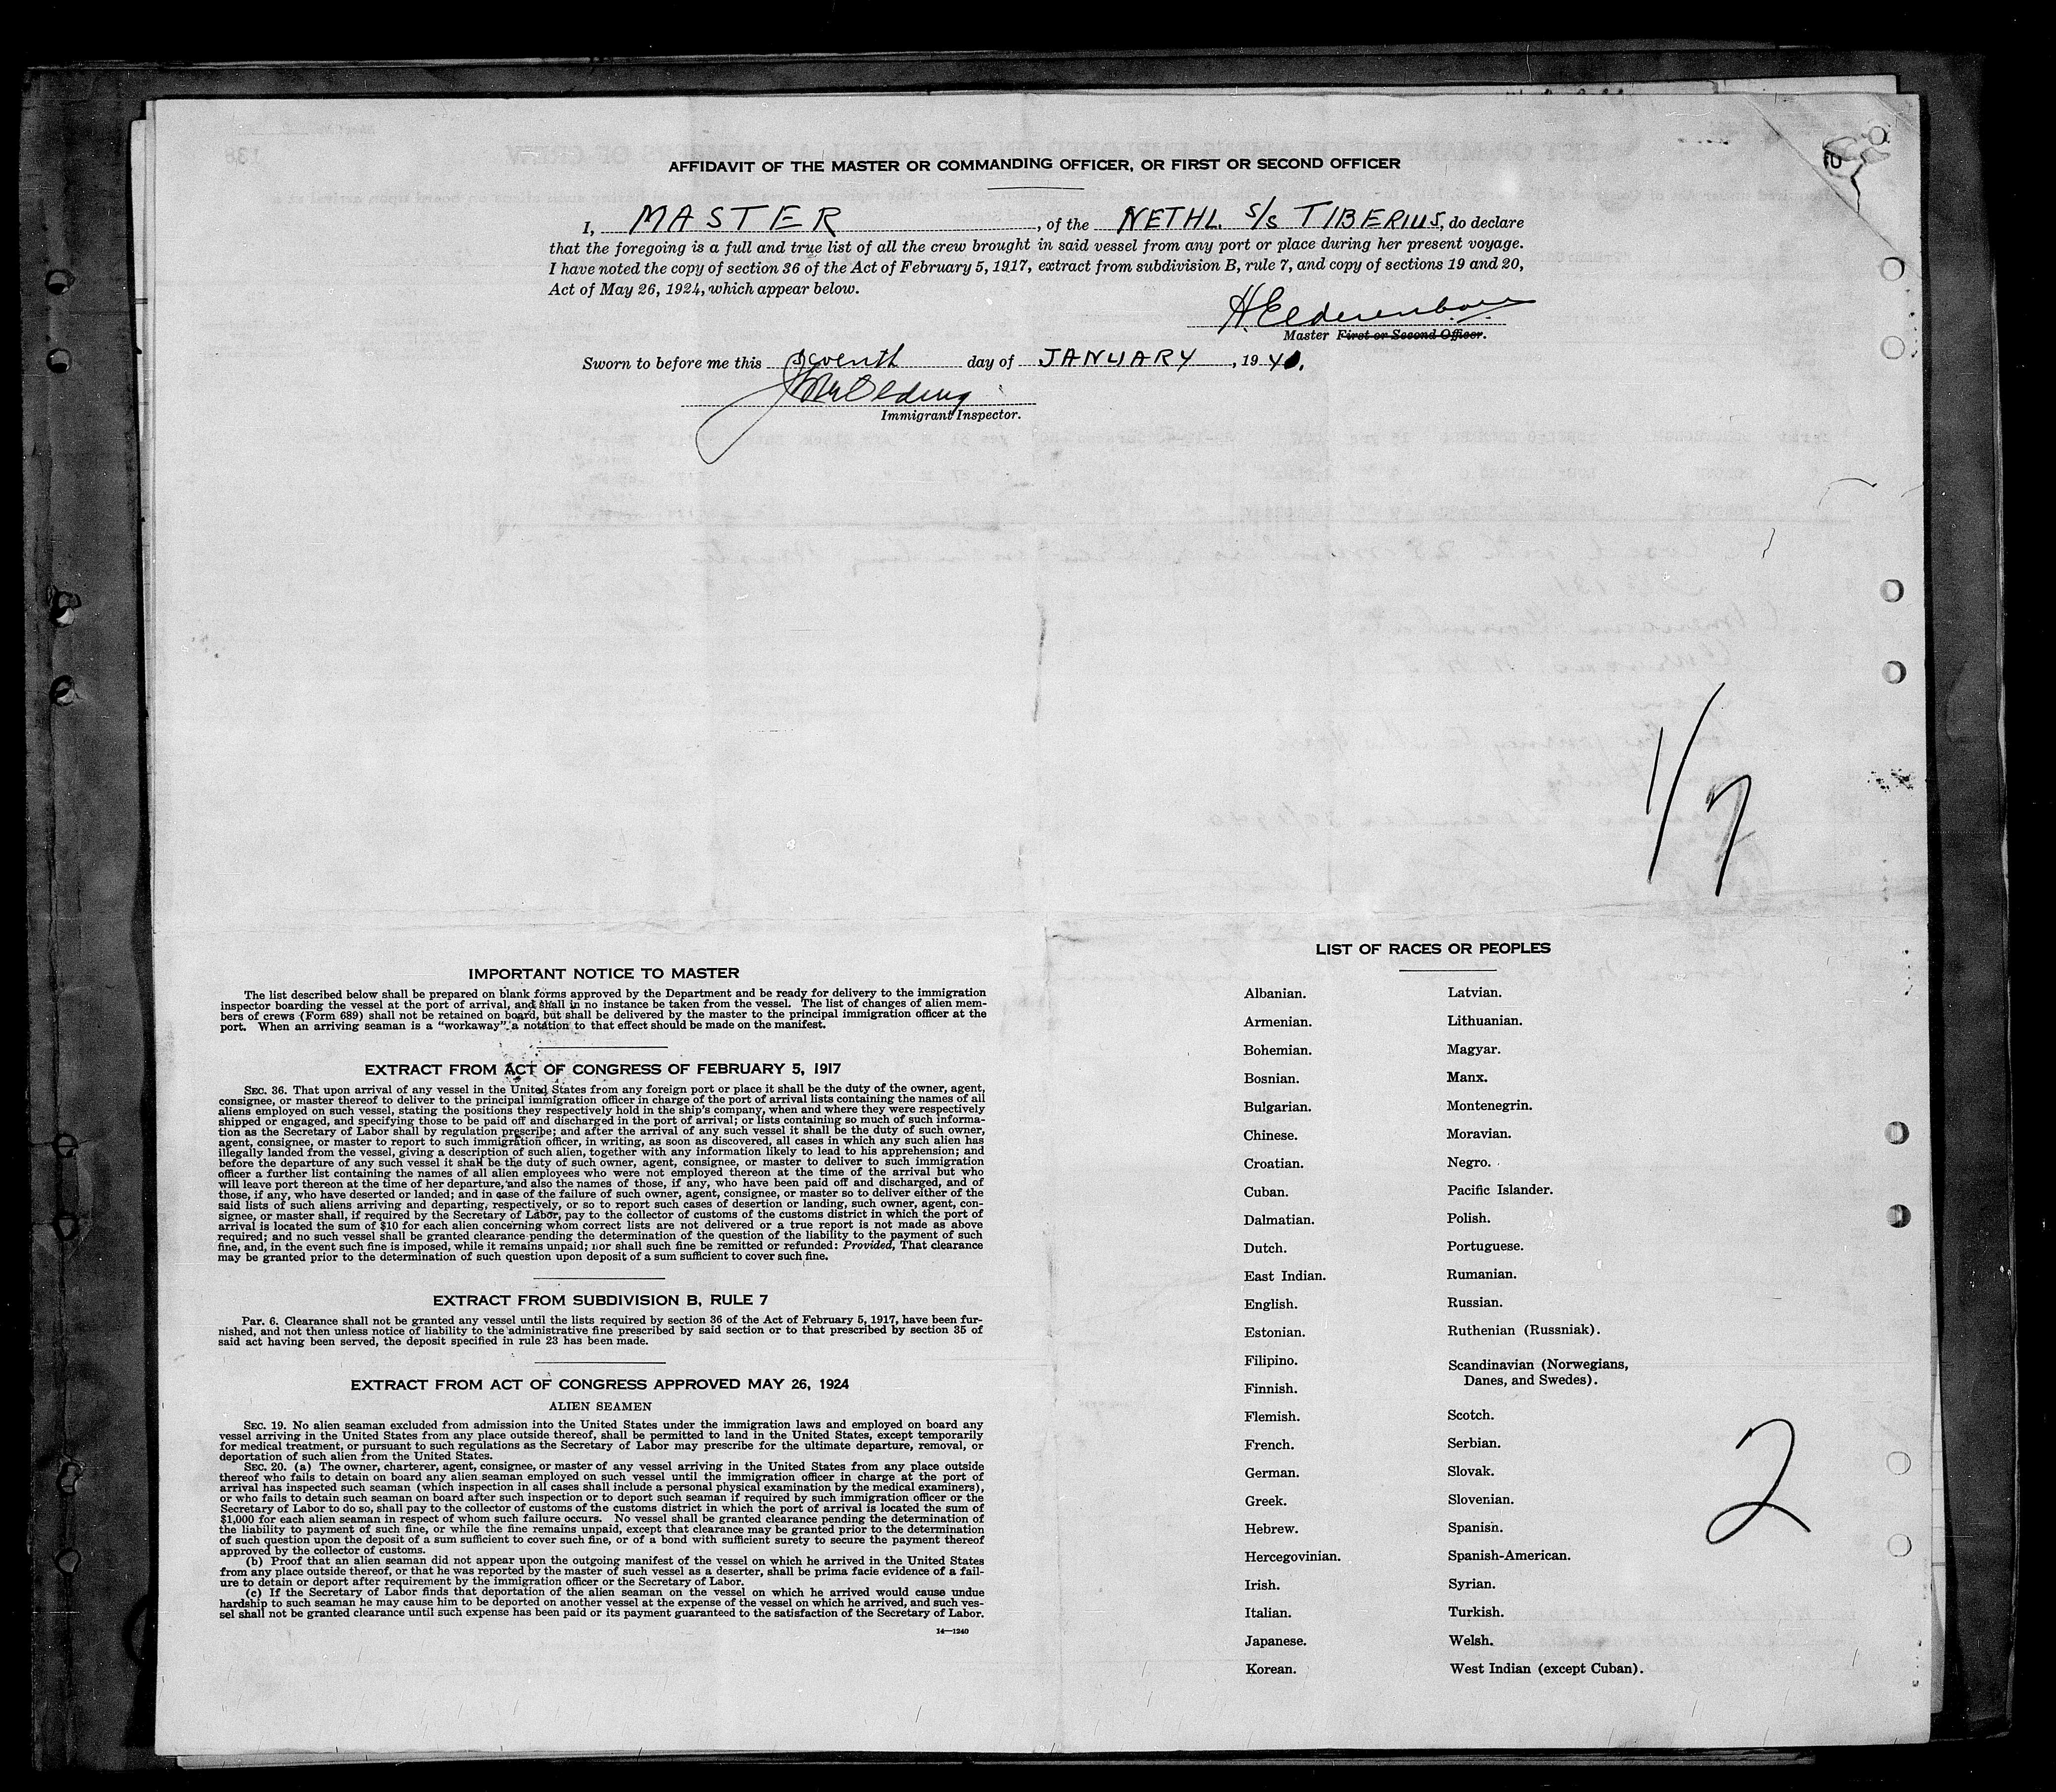 AFFIDAVIT OF THE MASTER OR COMMANDING OFFICER, OR FIRST OR SECOND OFFICER
I, MASTER, of the NETHL. S/S TIBERIUS, do declare
that the foregoing is a full and true list of all the crew brought in said vessel from any port or place during her present voyage.
I have noted the copy of section 36 of the Act of February 5, 1917, extract from subdivision B, rule 7, and copy of sections 19 and 20,
Act of May 26, 1924, which appear below.
Master First or Second Officer.
Sworn to before me this seventh day of JANUARY, 194
Immigrant Inspector.
1/7
IMPORTANT NOTICE TO MASTER
The list described below shall be prepared on blank forms approved by the Department and be ready for delivery to the immigration
inspector boarding the vessel at the port of arrival, and shall in no instance be taken from the vessel. The list of changes of alien mem-
bers of crews (Form 689) shall not be retained on board, but shall be delivered by the master to the principal immigration officer at the
port. When an arriving seaman is a "workaway" a notation to that effect should be made on the manifest.
EXTRACT FROM ACT OF CONGRESS OF FEBRUARY 5, 1917
SEC. 36. That upon arrival of any vessel in the United States from any foreign port or place it shall be the duty of the owner, agent,
consignee, or master thereof to deliver to the principal immigration officer in charge of the port of arrival lists containing the names of all
aliens employed on such vessel, stating the positions they respectively hold in the ship's company, when and where they were respectively
shipped or engaged, and specifying those to be paid off and discharged in the port of arrival; or lists containing so much of such informa-
tion as the Secretary of Labor shall by regulation prescribe; and after the arrival of any such vessel it shall be the duty of such owner,
agent, consignee, or master to report to such immigration officer, in writing, as soon as discovered, all cases in which any such alien has
illegally landed from the vessel, giving a description of such alien, together with any information likely to lead to his apprehension; and
before the departure of any such vessel it shall be the duty of such owner, agent, consignee, or master to deliver to such immigration
officer a further list containing the names of all alien employees who were not employed thereat at the time of the arrival but who
will leave port thereon at the time of her departure, and also the names of those, if any, who have been paid off and discharged, and of
those, if any, who have deserted or landed; and in case of the failure of such owner, agent, consignee, or master so to deliver either of the
said lists of such aliens arriving and departing, respectively, or so to report such cases of desertion or landing, such owner, agent, con-
signee, or master shall, if required by the Secretary of Labor, pay to the collector of customs of the customs district in which the port of
arrival is located the sum of $10 for each alien concerning whom correct lists are not delivered or a true report is not made as above
required; and no such vessel shall be granted clearance pending the determination of the question of the liability to the payment of such
fine, and, in the event such fine is imposed, while it remains unpaid; nor shall such fine be remitted or refunded: Provided, That clearance
may be granted prior to the determination of such question upon deposit of a sum sufficient to cover such fine.
EXTRACT FROM SUBDIVISION B, RULE 7
Par. 6. Clearance shall not be granted any vessel until the lists required by section 36 of the Act of February 5, 1917, have been fur-
nished, and not then unless notice of liability to the administrative fine prescribed by said section or to that prescribed by section 35 of
said act having been served, the deposit specified in rule 23 has been made.
EXTRACT FROM ACT OF CONGRESS APPROVED MAY 26, 1924
ALIEN SEAMEN
SEC. 19. No alien seaman excluded from admission into the United States under the immigration laws and employed on board any
vessel arriving in the United States from any place outside thereof, shall be permitted to land in the United States, except temporarily
for medical treatment, or pursuant to such regulations as the Secretary of Labor may prescribe for the ultimate departure, removal, or
deportation of such alien from the United States.
SEC. 20. (a) The owner, charterer, agent, consignee, or master of any vessel arriving in the United States from any place outside
thereof who fails to detain on board any alien seaman employed on such vessel until the immigration officer in charge at the port of
arrival has inspected such seaman (which inspection in all cases shall include a personal physical examination by the medical examiners),
or who fails to detain such seaman on board after such inspection or to deport such seaman if required by such immigration officer or the
Secretary of Labor to do so, shall pay to the collector of customs of the customs district in which the port of arrival is located the sum of
$1,000 for each alien seaman in respect of whom such failure occurs. No vessel shall be granted clearance pending the determination of
the liability to payment of such fine, or while the fine remains unpaid, except that clearance may be granted prior to the determination
of such question upon the deposit of a sum sufficient to cover such fine, or of a bond with sufficient surety to secure the payment thereof
approved by the collector of customs.
(b) Proof that an alien seaman did not appear upon the outgoing manifest of the vessel on which he arrived in the United States
from any place outside thereof, or that he was reported by the master of such vessel as a deserter, shall be prima facie evidence of a fail-
ure to detain or deport after requirement by the immigration officer or the Secretary of Labor.
(c) If the Secretary of Labor finds that deportation of the alien seaman on the vessel on which he arrived would cause undue
hardship to such seaman he may cause him to be deported on another vessel at the expense of the vessel on which he arrived, and such ves-
sel shall not be granted clearance until such expense has been paid or its payment guaranteed to the satisfaction of the Secretary of Labor.
14—1240
LIST OF RACES OR PEOPLES
Albanian.
Armenian.
Bohemian.
Bosnian.
Bulgarian.
Chinese.
Croatian.
Cuban.
Dalmatian.
Dutch.
East Indian.
English.
Estonian.
Filipino.
Finnish.
Flemish.
French.
German.
Greek.
Hebrew.
Hercegovinian.
Irish.
Italian.
Japanese.
Korean.
Latvian.
Lithuanian.
Magyar.
Manx.
Montenegrin.
Moravian.
Negro.
Pacific Islander.
Polish.
Portuguese.
Rumanian.
Russian.
Ruthenian (Russniak).
Scandinavian (Norwegians,
Danes, and Swedes).
Scotch.
Serbian.
Slovak.
Slovenian.
Spanish.
Spanish-American.
Syrian.
Turkish.
Welsh.
West Indian (except Cuban).
2